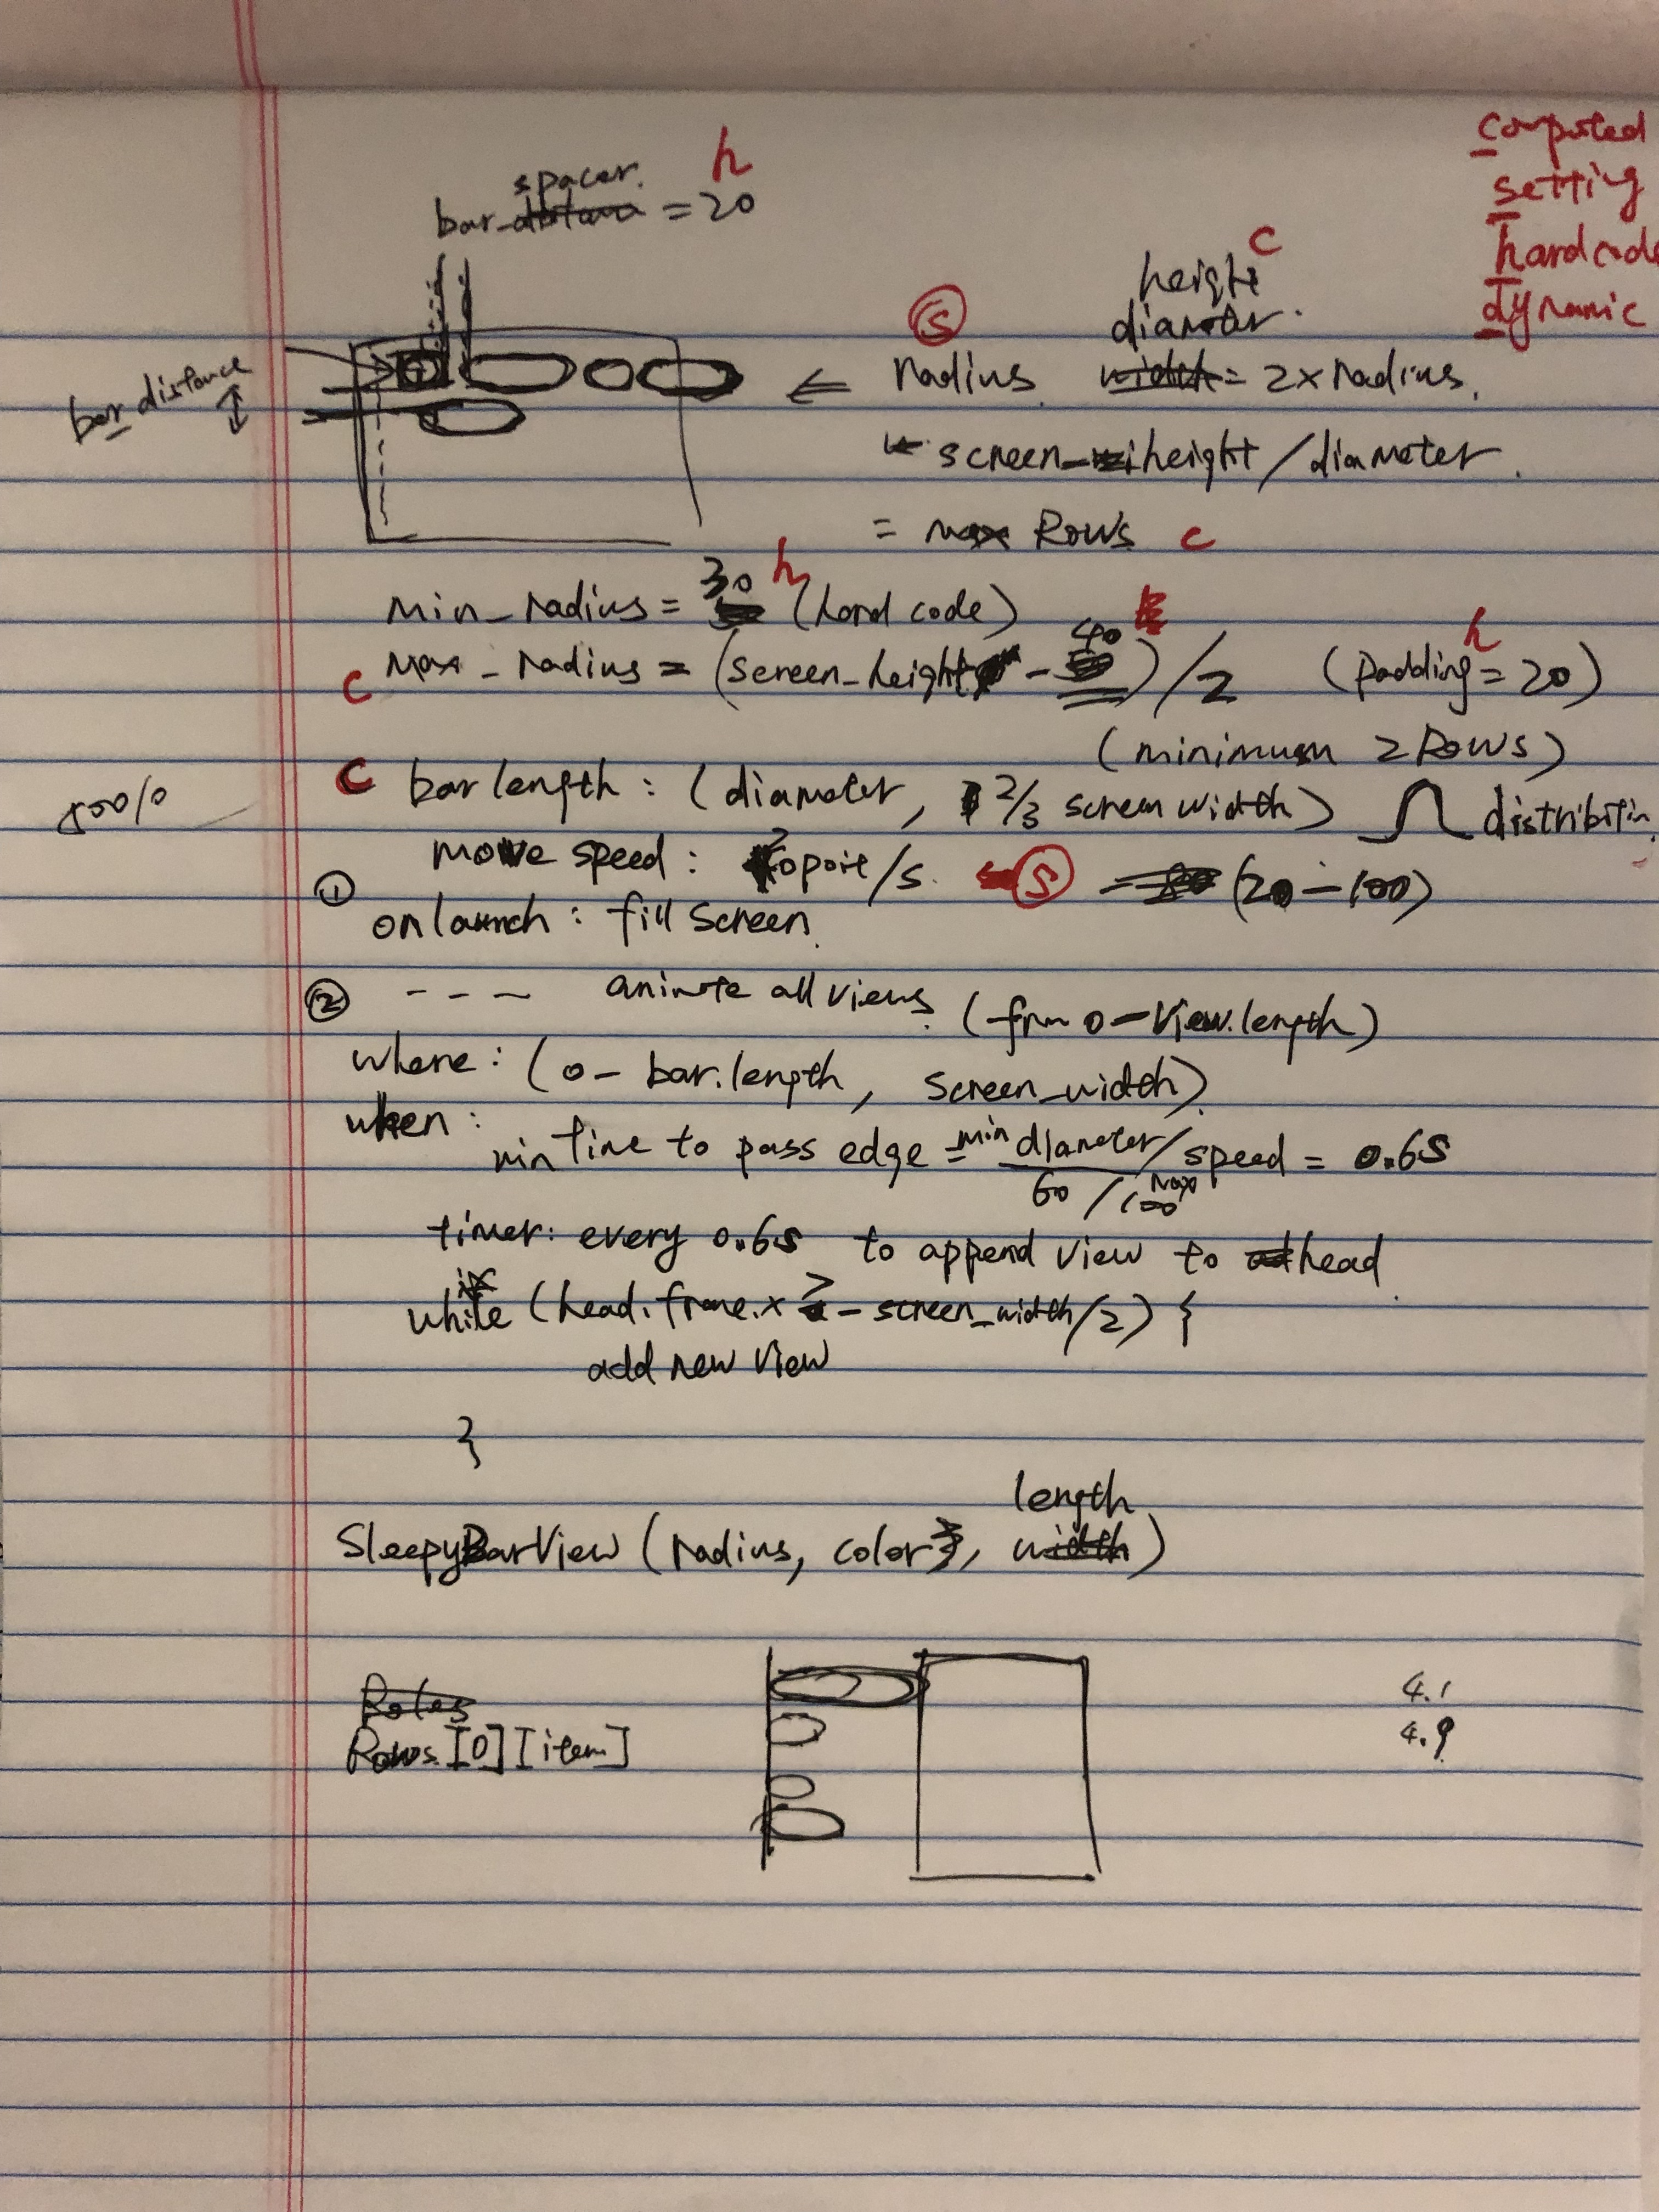 computed
setting
hardcode
dynamic
spacer. h
bar_distance = 20
bar distance
height c
diameter.
s
radius. width = 2x radius.
screen_height / diameter.
= max Rows c
min_radius = 30 h (hard code)
c max_radius = (screen_height - 40) / 2 (padding = 20) h
(minimum 2 Rows)
c bar length : (diameter, 2/3 screen width) distribution
move speed : /s. s (20 - 100)
① on launch : fill screen.
② - - - animate all views. (from 0 - view.length)
where : (0 - bar.length, screen_width)
when :
min time to pass edge = min diameter / speed = 0.6s
60 / 100 max
timer: every 0.6s to append view to head
if
while (head.frame.x > - screen_width/2) {
add new view
}
length
SleepyBarView (radius, color, width)
Rows [0] [item]
4.1
4.9